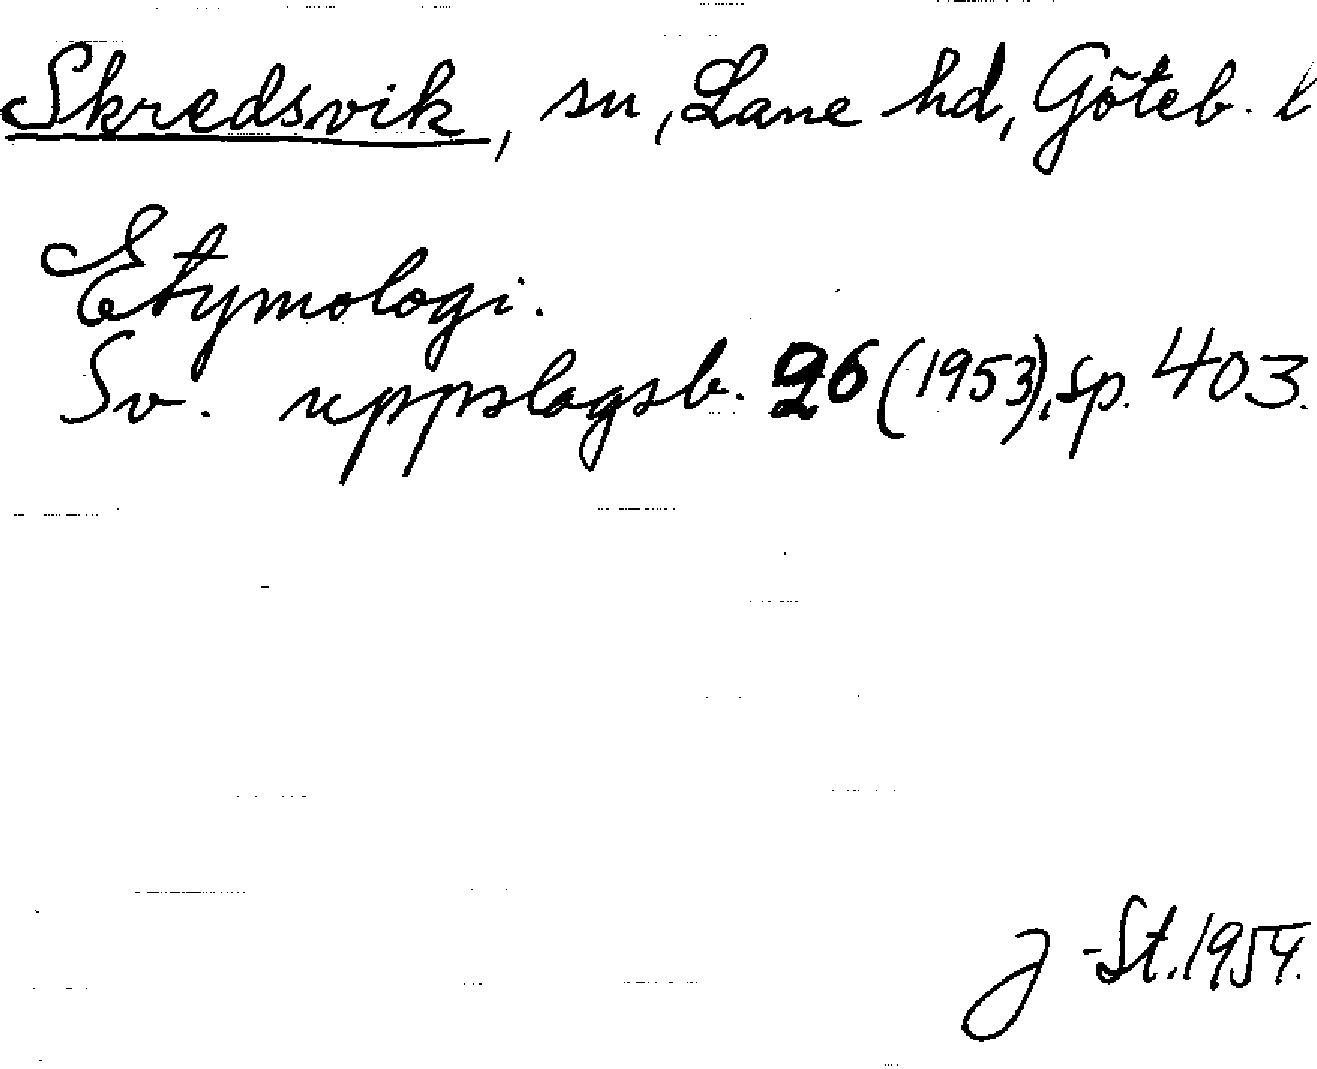 Skredsvik, sn, Lane hd, Göteb. l
Etymologi.
Sv. uppslagsb. 26 (1953), sp. 403.
J-St. 1954.